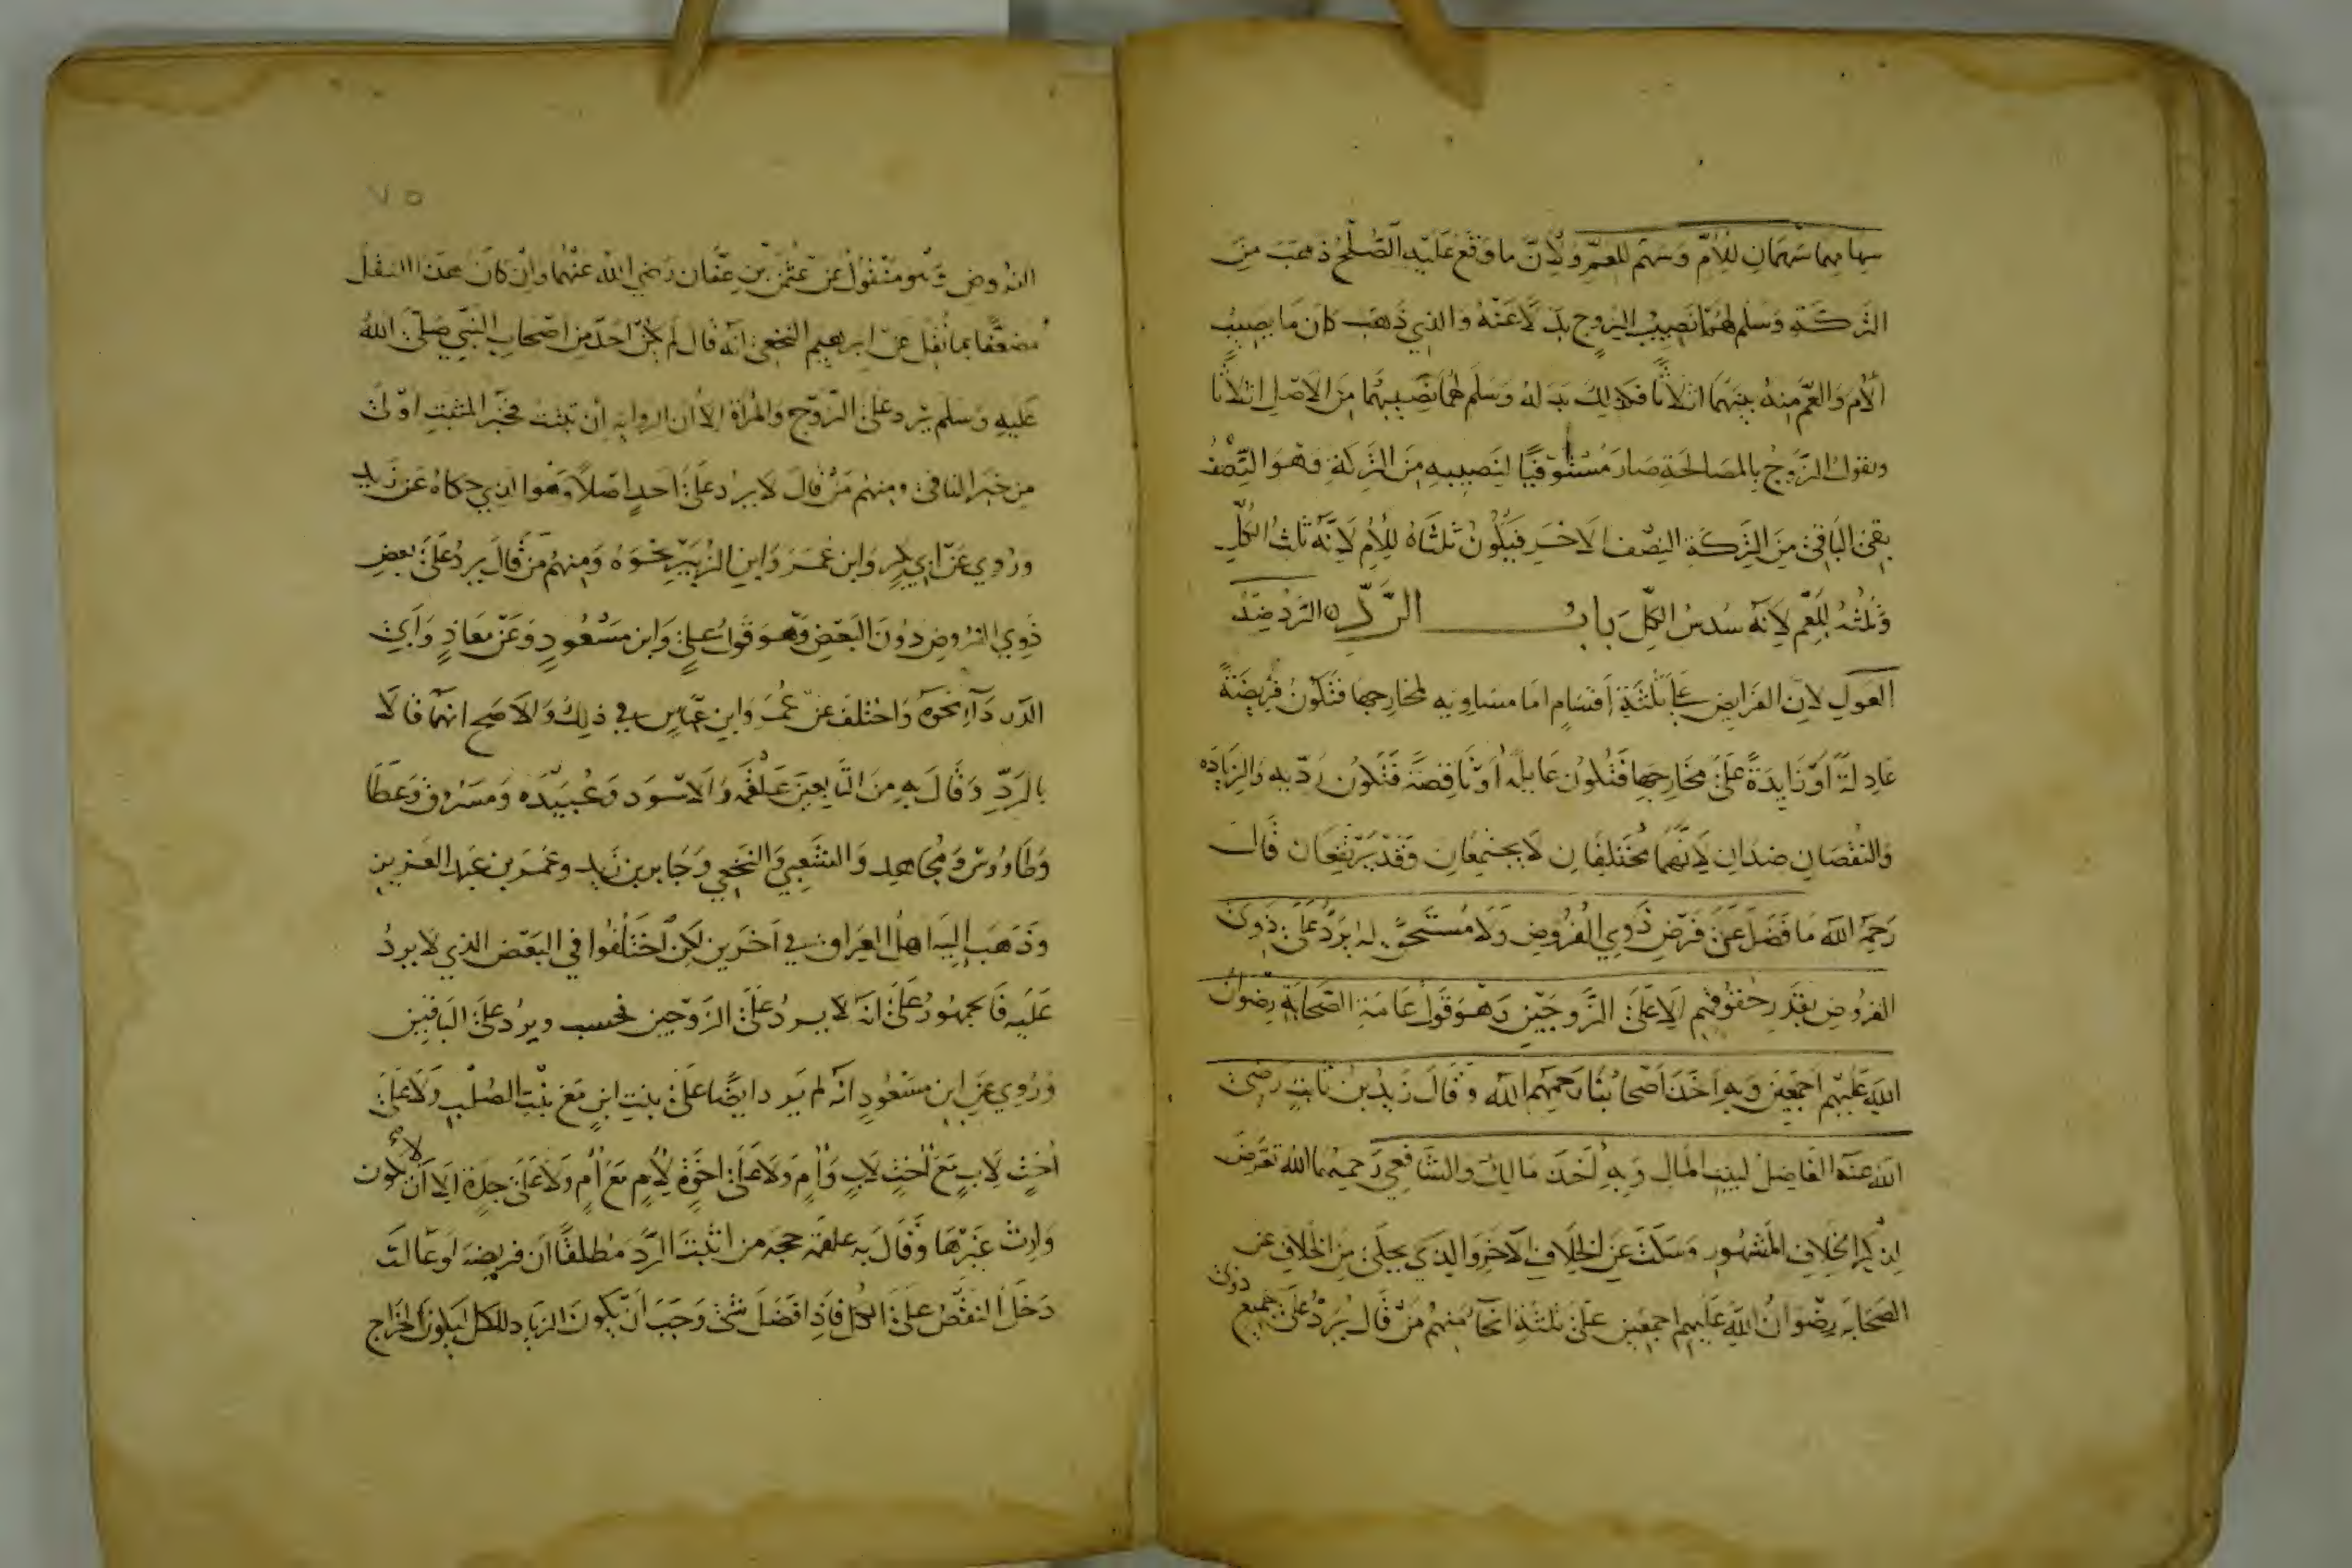 سهامهما سهمان للأم وسهم للعم ولأن ما وقع عليه الصلح ذهب من
التركة وسلم لهما نصيب الزوج بدلا عنه والذي ذهب كان ما يصيب
الأم والعم منه بينهما اثلاثا فكذلك بدله وسلم لهما نصيبهما من الاصل اثلاثا
ونقول الزوج بالمصالحة صار مستوفيا لنصيبه من التركة وهو النصف
بقى الباقي من التركة النصف الاخر فيكون ثلثاه للأم لانه ثلث الكل
وثلثه للعم لانه سدس الكل باب الرد الرد ضد
العول لان الفرايض على ثلثة أقسام اما مساويه لمخارجها فتكون فريضة
عادلة أو زايدة على مخارجها فتكون عايلة أو ناقصة فتكون ردية والزياده
والنقصان ضدان لانهما مختلفان لا يجتمعان وقد يرتفعان قال
رحمه الله ما فضل عن فرض ذوي الفروض ولا مستحق له يرد على ذوى
الفروض بقدر حقوقهم الا على الزوجين وهو قول عامة الصحابة رضوان
الله عليهم اجمعين وبه اخذ اصحابنا رحمهم الله وقال زيد بن ثابت رضى
الله عنه الفاضل لبيت المال وبه اخذ مالك والشافعي رحمهما الله تعرض
لذكر الخلاف المشهور وسكت عن الخلاف الاخر والذي يحكى من الخلاف عن
الصحابه رضوان الله عليهم اجمعين على ثلثة انحا منهم من قال يرد على جميع ذوى
٧٥
الفروض وهو منقول عن عثمن بن عفان رضي الله عنهما وان كان هذا النقل
مضعفا بما نقل عن ابرهيم النخعي انه قال لم يكن احد من اصحاب النبي صلى الله
عليه وسلم يرد على الزوج والمرأة الا ان الروايه ان تثبت فخبر المثبت اولى
من خبر النافي ومنهم من قال لا يرد على احد اصلا وهو الذي حكاه عن زيد
وروي عن ابي بكر وابن عمر وابن الزبير نحوه ومنهم من قال يرد على بعض
ذوي الفروض دون البعض وهو قول علي وابن مسعود وعن معاذ وأبى
الدرداء نحوه واختلف عن عمر وابن عباس في ذلك والاصح انهما قالا
بالرد وقال به من التابعين علقمة والاسود وعبيده ومسروق وعطا
وطاووس ومجاهد والشعبي والنخعي وجابر بن زيد وعمر بن عبد العزيز
وذهب اليه اهل العراق في آخرين لكن اختلفوا في البعض الذي لا يرد
عليه فالجمهور على انه لا يرد على الزوجين فحسب ويرد على الباقين
وروي عن ابن مسعود انه لم يرد ايضا على بنت ابن مع بنت الصلب ولا على
أخت لاب مع أخت لاب وأم ولا على اخوة لأم مع أم ولا على جدة الا أن لا يكون
وارث غيرها وقال به علقمة حجه من اثبت الرد مطلقا ان فريضه لو عالت
دخل النقص على الكل فاذا فضل شئ وجب أن يكون الزياد للكل ليكون الخراج